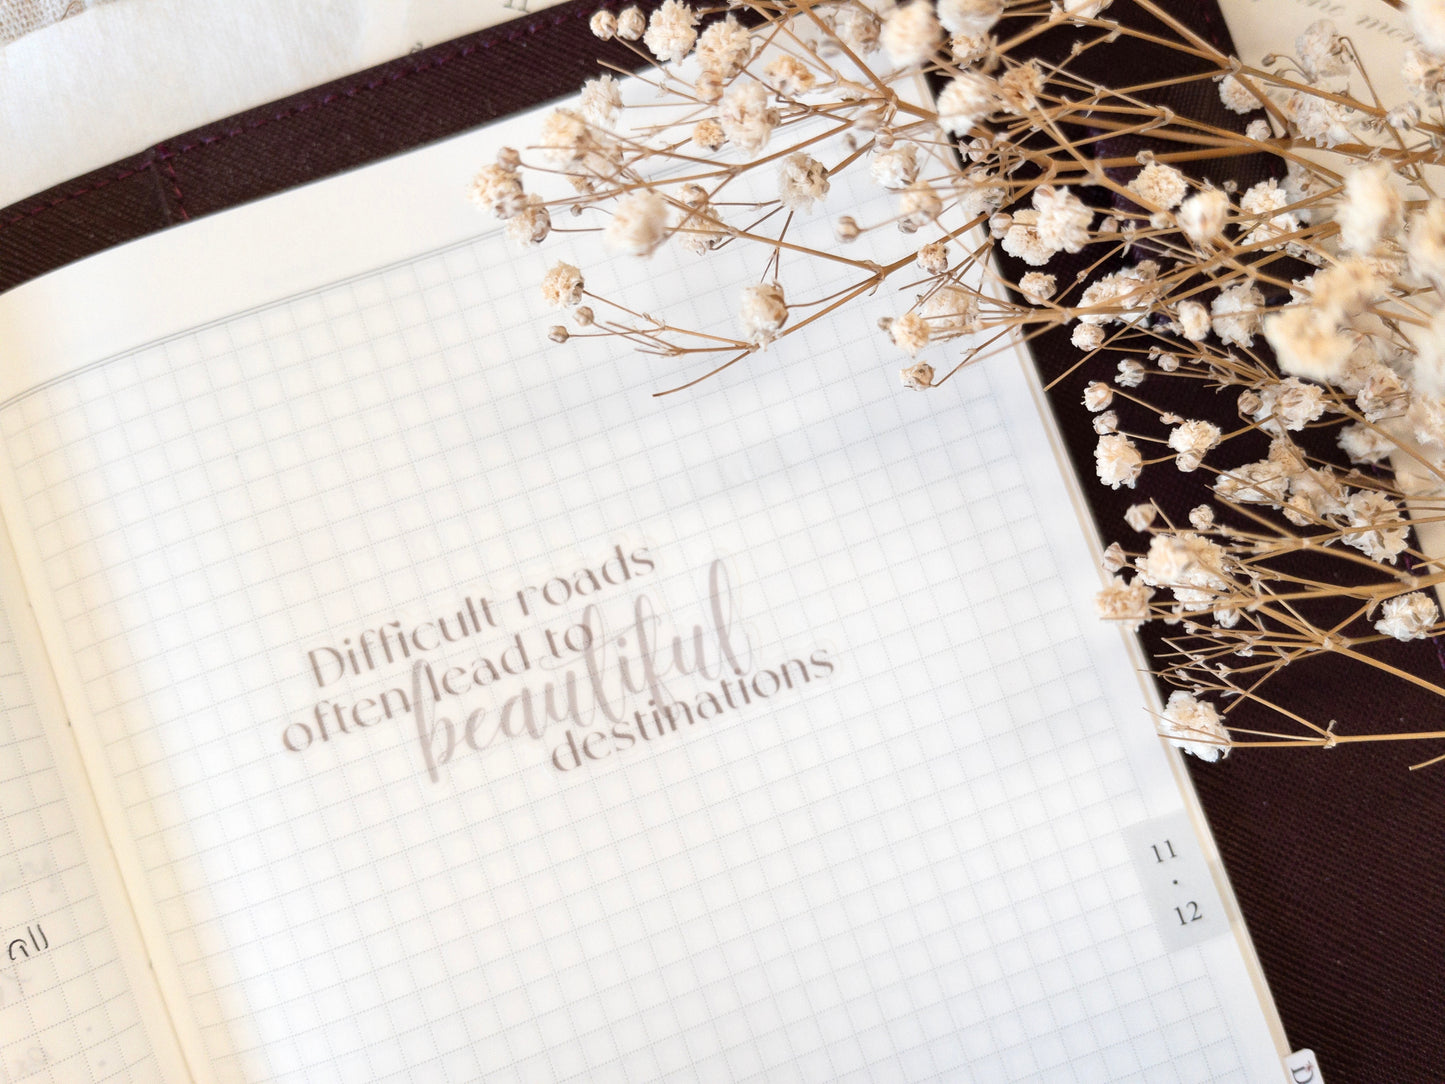 Difficult roads
often lead to
beautiful
destinations
11
·
12
all
D